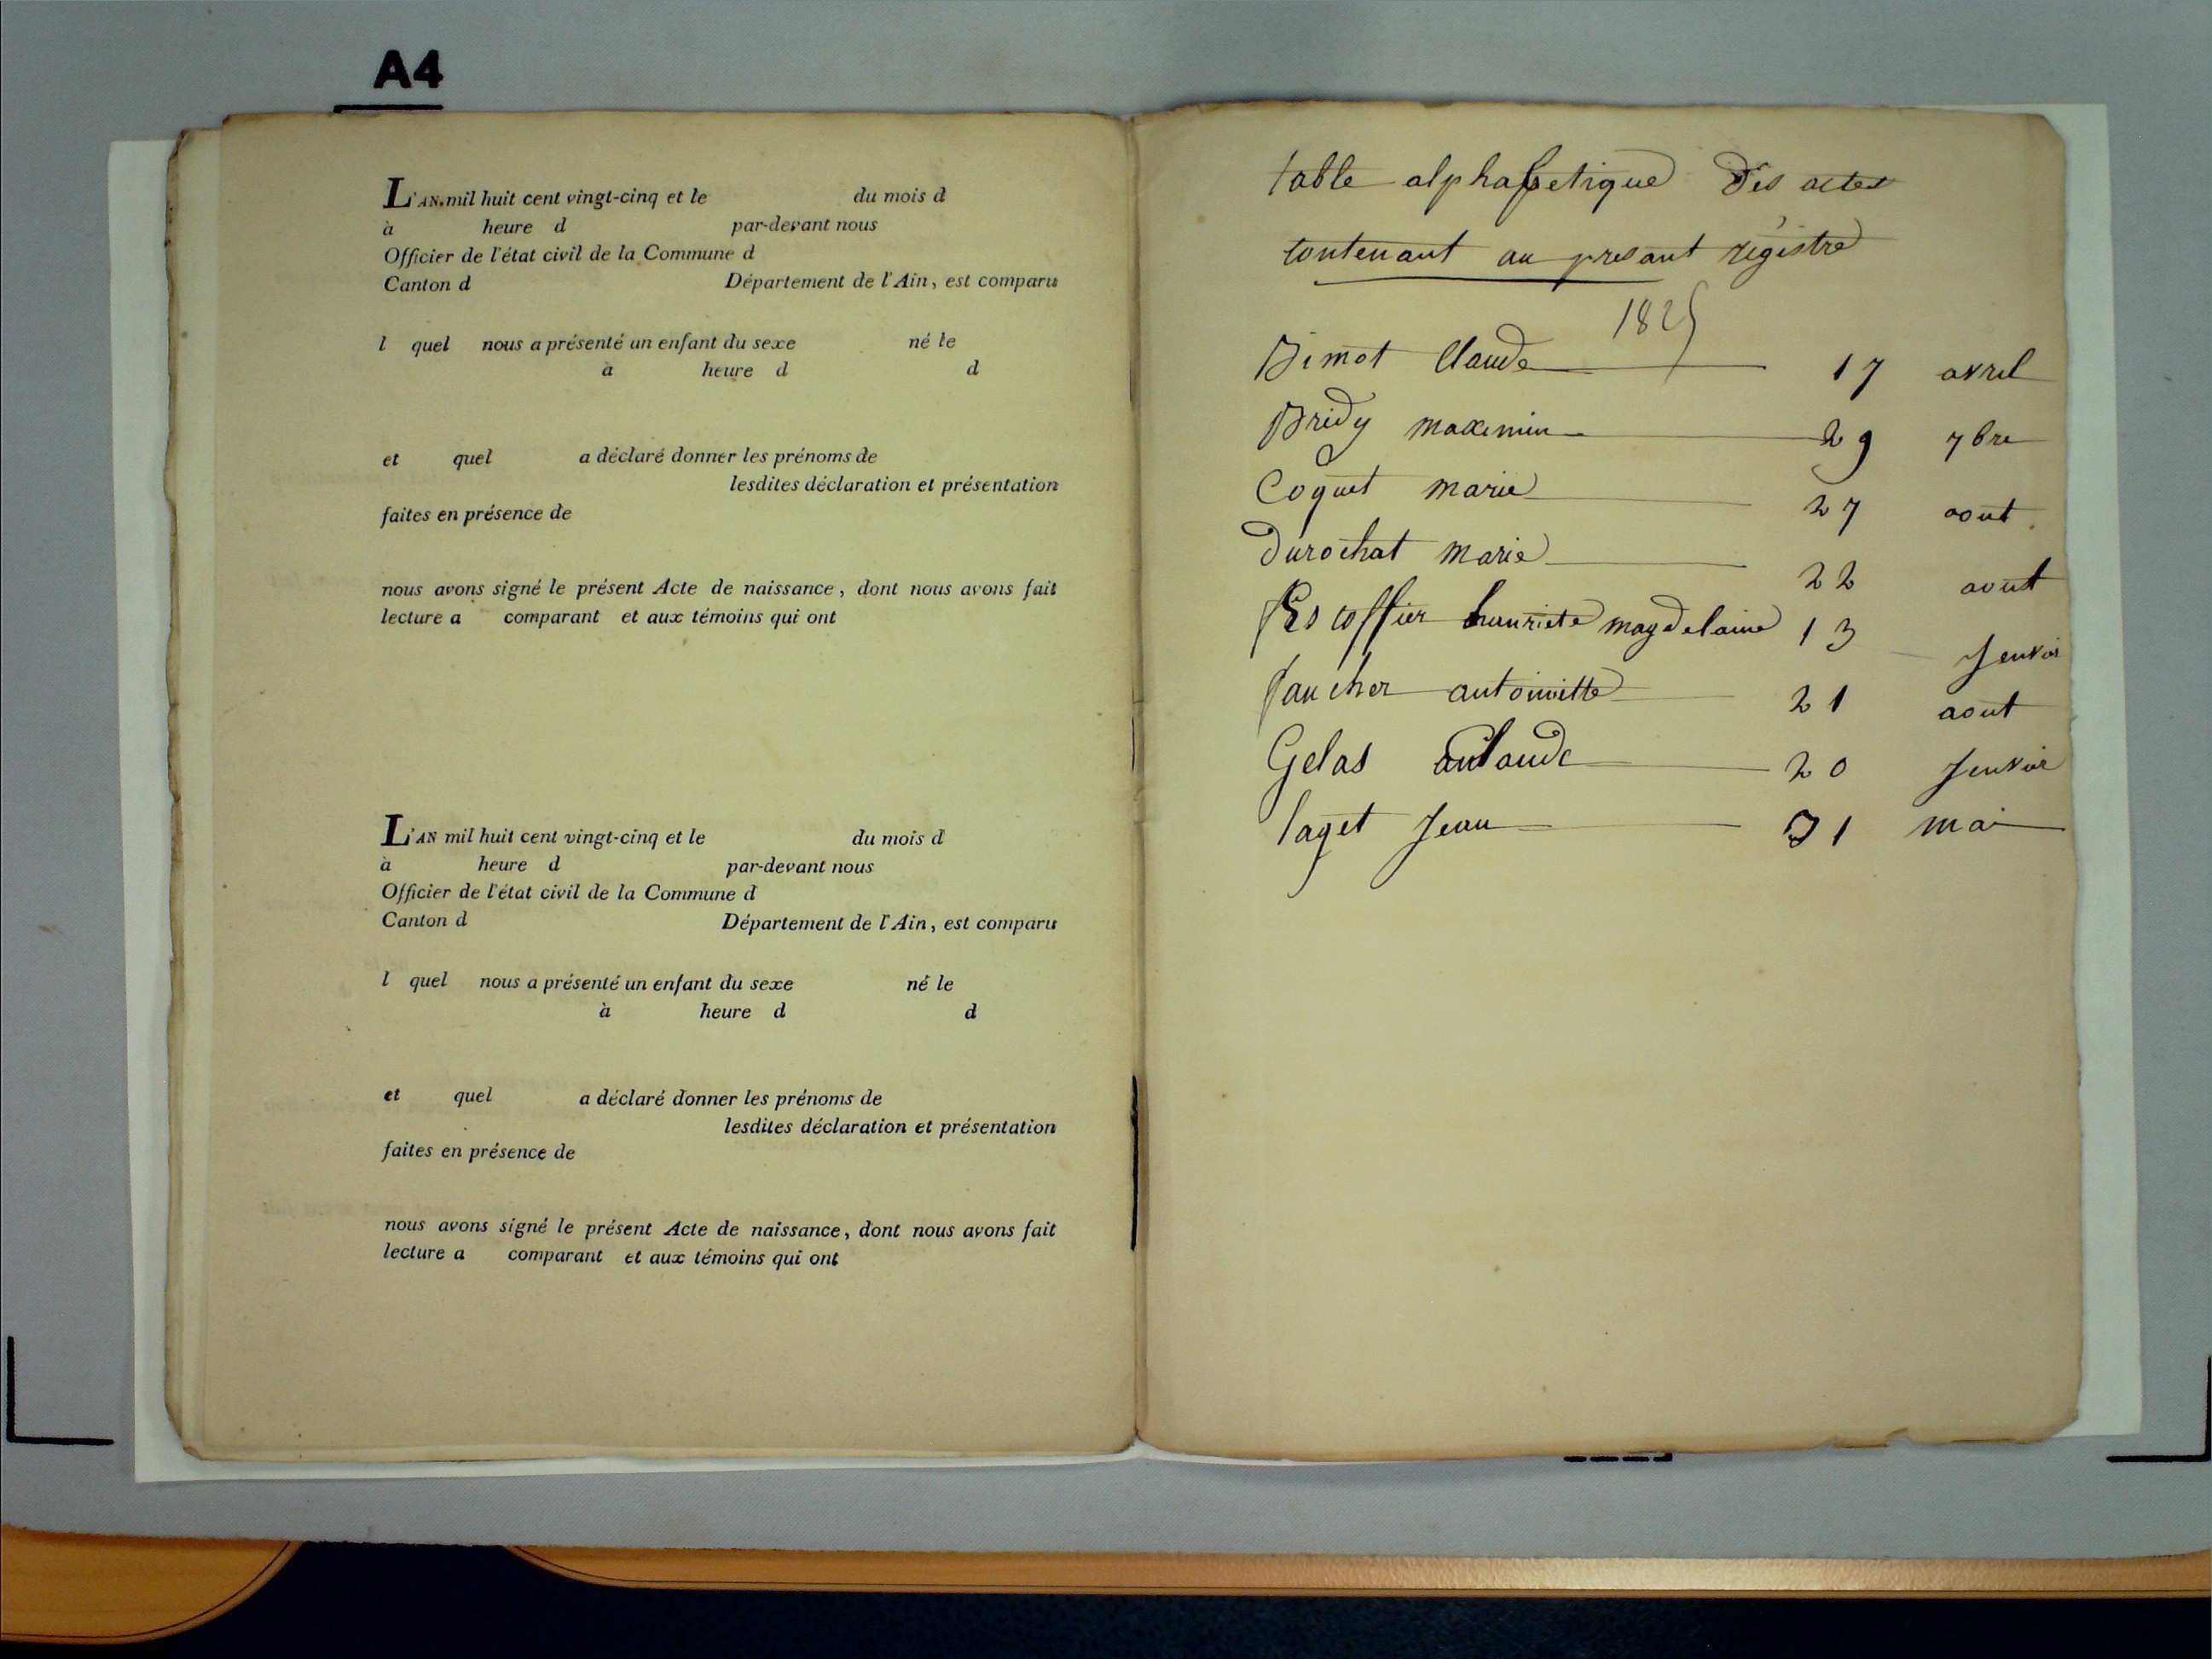 A4
L'AN mil huit cent vingt-cinq et le du mois d
à heure d par-devant nous
Officier de l'état civil de la Commune d
Canton d Département de l'Ain, est comparu
l quel nous a présenté un enfant du sexe né le
à heure d d
et quel a déclaré donner les prénoms de
lesdites déclaration et présentation
faites en présence de
nous avons signé le présent Acte de naissance, dont nous avons fait
lecture a comparant et aux témoins qui ont
L'AN mil huit cent vingt-cinq et le du mois d
à heure d par-devant nous
Officier de l'état civil de la Commune d
Canton d Département de l'Ain, est comparu
l quel nous a présenté un enfant du sexe né le
à heure d d
et quel a déclaré donner les prénoms de
lesdites déclaration et présentation
faites en présence de
nous avons signé le présent Acte de naissance, dont nous avons fait
lecture a comparant et aux témoins qui ont
table alphabetique des actes
contenant au presant régistre
1825
Bimot Claude 17 avril
Bridy maximin 29 7bre
Coquet marie 27 aout
Durochat marie 22 aout
Escoffier henriete magdelaine 13 Jenvir
faucher antoinette 21 aout
Gelas 20 Jenvir
laget Jean 31 mai